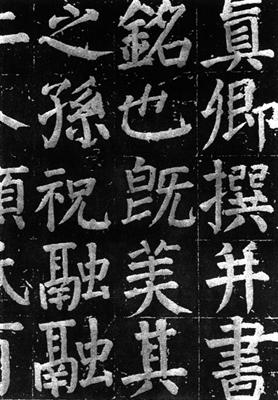 眞卿撰并書
銘也既美其
之孫祝融融